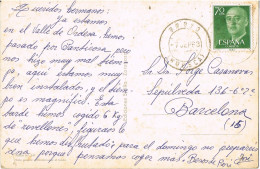 Queridos hermanos: Ya estamos
en el Valle de Ordesa, hemos
pasado por Panticosa, pero
hizo muy mal tiem-
po, aquí estamos muy
bien instalados, y el tiem-
po es magnífico. Esta
tarde hemos cogido 6 Kg.
de revellones, figuraros lo
que hemos disfrutado! para el domingo no preparéis
cena porque pensamos coger mas. Besos de José
70
ESPAÑA
Jorge Casanova
Sepúlveda 136-6º-2ª
Barcelona
(15)